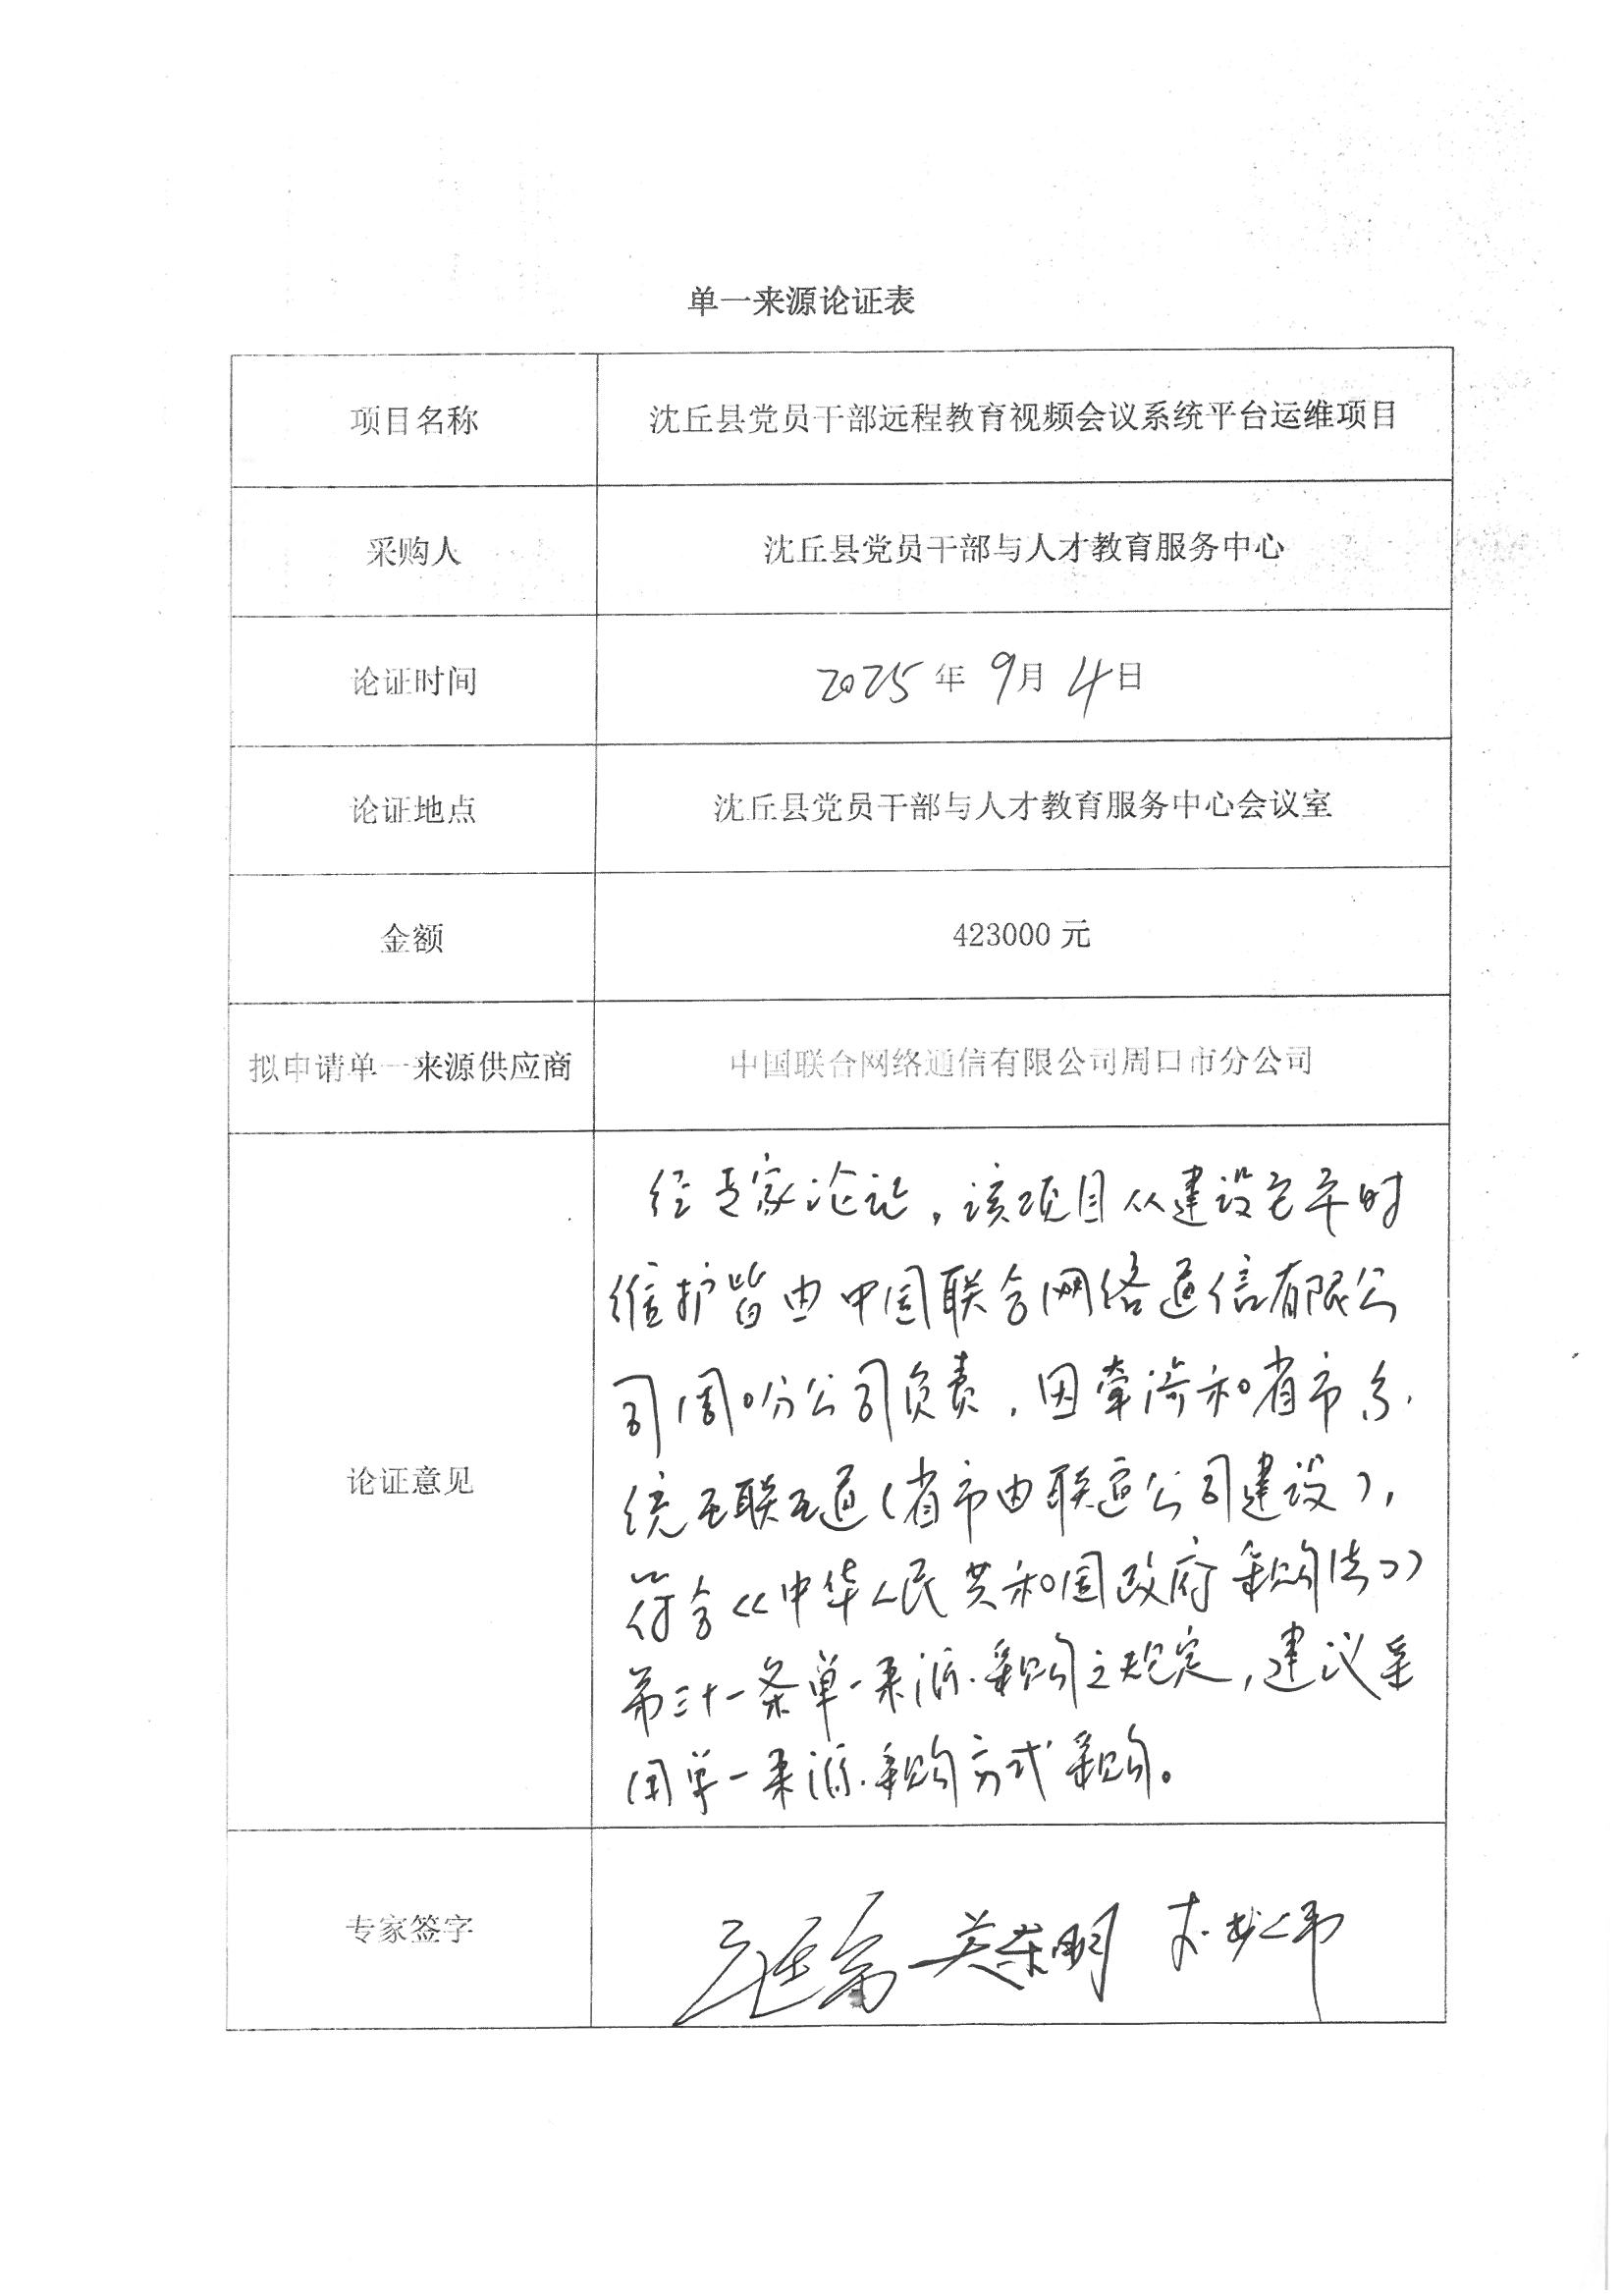 单一来源论证表
项目名称 沈丘县党员干部远程教育视频会议系统平台运维项目
采购人 沈丘县党员干部与人才教育服务中心
论证时间 2025年9月4日
论证地点 沈丘县党员干部与人才教育服务中心会议室
金额 423000元
拟申请单一来源供应商 中国联合网络通信有限公司周口市分公司
论证意见
经专家论证,该项目从建设到平时
维护皆由中国联合网络通信有限公
司周口分公司负责,因牵涉和省市系
统互联互通(省市由联通公司建设),
符合《中华人民共和国政府采购法》
第三十一条单一来源采购之规定,建议采
用单一来源采购方式采购。
专家签字